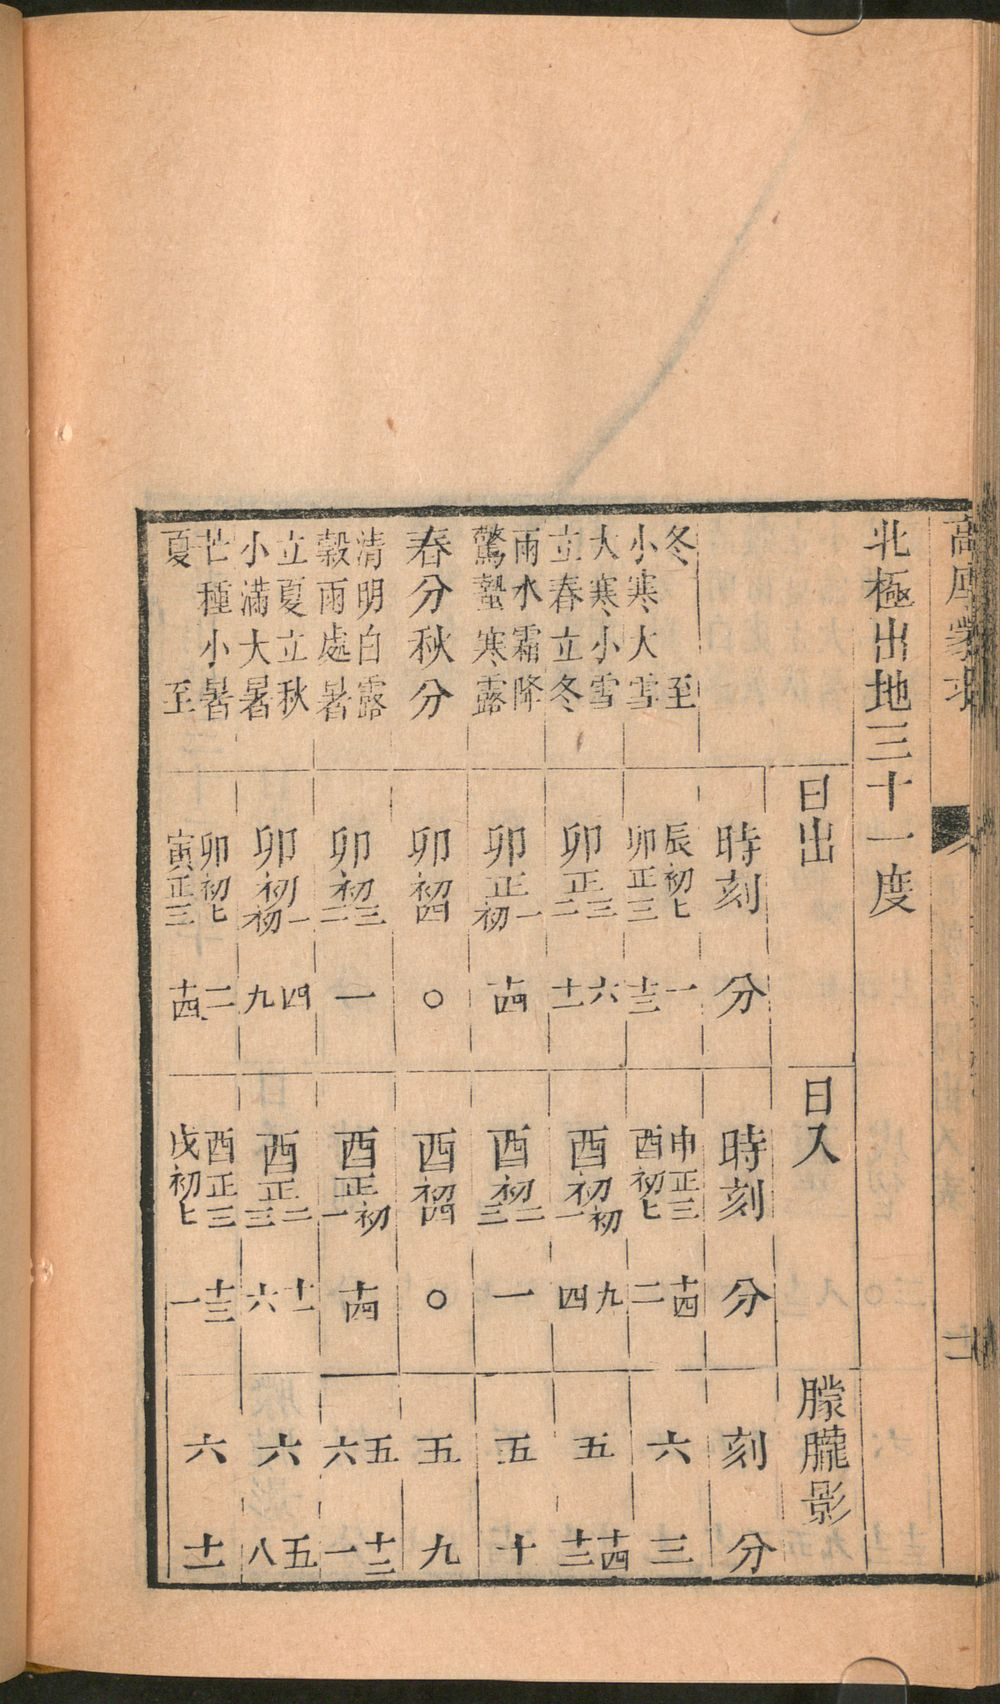 高厚蒙求
北極出地三十一度
日出 日入 朦朧影
時刻 分 時刻 分 刻 分
冬至 辰初七 一 申正三 十四 六 三
小寒大雪 卯正三 十三 酉初七 二
大寒小雪 卯正三 六 酉初初 九 五 十四
立春立冬 二 十一 一 四 十三
雨水霜降 卯正一 十四 酉初二 一 五 十
驚蟄寒露 初 三
春分秋分 卯初四 〇 酉初四 〇 五 九
清明白露 卯初三 一 酉正初 十四 五 十二
穀雨處暑 二 一 六 一
立夏立秋 卯初一 四 酉正二 十一 六 五
小滿大暑 初 九 三 六 八
芒種小暑 卯初七 二 酉正三 十三 六 十一
夏至 寅正三 十四 戌初七 一